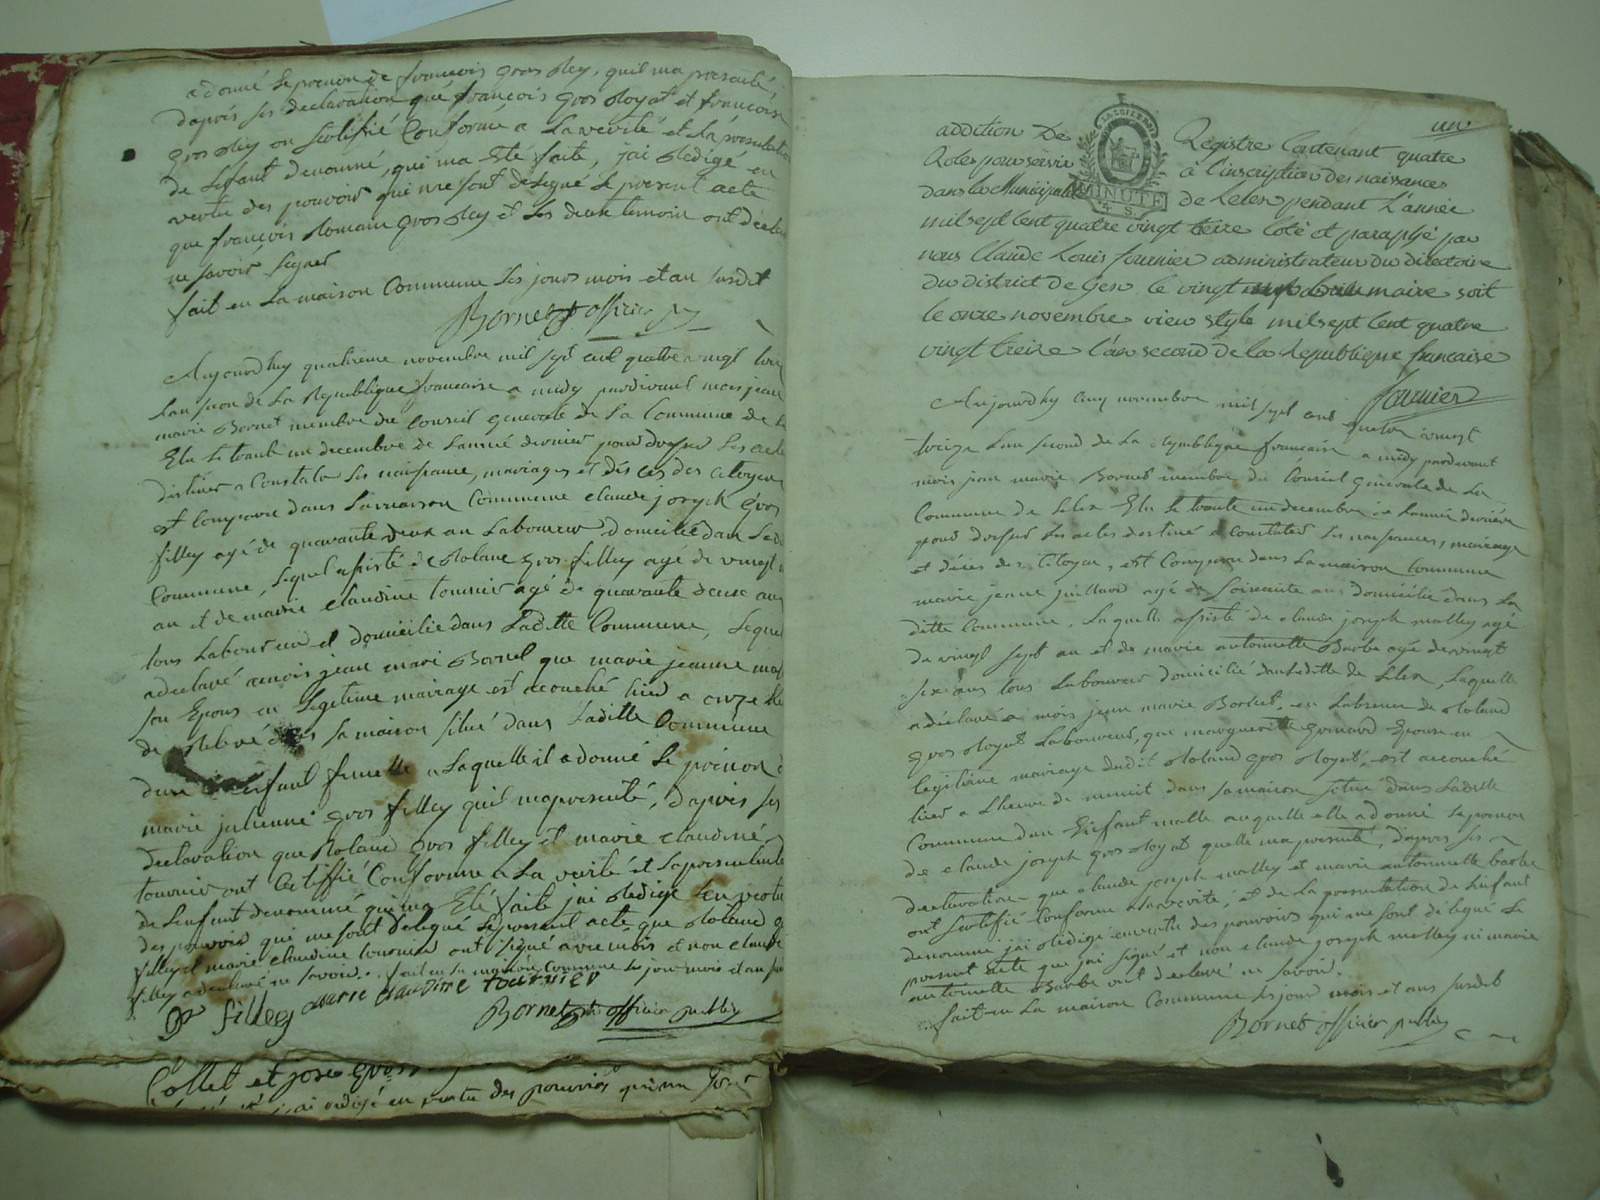 a donné le prenom de françois gros Rey, quil ma presenté,
daprés les declaration que françois gros Royat et françois
gros Rey on sertiffié Conforme a La verité et la presentation
de Lenfant denommé, qui ma Eté faite, jai Redigé en
vertu des pouvoir qui me sont delegué le present acte
que françois Romain gros Rey et les deux temoin ont declaré
ne savoir signer
fait en La maison Commune Les jours mois et an susdit
Bornet officier
Aujourdhuy quatrieme novembre mil sept cent quatre vingt treize
Lan segon de La Republique francaise a midy pardevant mois jean
marie Bornet membre du Conseil generale de La Commune de
Elu Le trente un decembre de Lannée dernier pour dresser Les acte
destiner a Constater Les naissance, mariages et décés des citoyens
est Comparu dans La maison Commune claude joseph gros
filley agé de quarante deux an Laboureur domicilié dans La
Commune, Lequel assisté de Rolane gros filley agé de vingt
an et de marie claudine tournier agé de quarante deux ans
tous Laboureur et domicilié dans Laditte Commune, Lequel
a declaré a mois jean marie Bornet que marie jeanne
son Epous en Legitime mariage est acouché hier a onze
de Relevé dans sa maison situé dans Laditte Commune
dun Enfant femelle a Laquelle il a donné Le prenom
marie julienne gros filley quil ma presenté, daprés les
declaration que Roland gros filley et marie claudine
tournier ont Certiffié Conforme a La verité et La presentation
de Lenfant denommé qui ma Eté faite jai Redigé En vertu
des pouvoir qui me sont delegué Le present acte que Roland
filley et marie claudine tournier ont signé avec mois et non claude
filley a declaré ne savoir. fait en La maison Commune Les jour mois et an
G filley marie claudine tournier
Bornet officier public
Collet et jose gros
jai redigé en vertu des pouvoirs qui me sont
un
addition De Registre Contenant quatre
Roles pour servir à l'inscription des naissances
dans la Municipalité de Lelex pendant L'année
MINUTE
4. S.
mil sept Cent quatre vingt treize Coté et paraphé par
nous Claude Louis fournier administrateur du directoire
du district de Gex le vingt brumaire soit
le onze novembre vieu style mil sept Cent quatre
vingt treize l'an second de la Republique francaise
fournier
Aujourdhy cinq novembre mil sept cent quatre vingt
treize Lan second de La republique francaise a midy pardevant
mois jean marie Bornet membre du Conseil generale de La
Commune de Lelex Elu Le trente un decembre de Lannée derniere
pour dresser Les actes destiné a constater Les naissances, mariage
et décés des Citoyen, est Comparu dans La maison Commune
marie jeanne juillard agé de soixante ans domicilié dans La
ditte Commune, Laquelle assisté de claude joseph malley agé
de vingt sept an et de marie antoinette Barbe agé de vingt
six ans tous Laboureur domicilié dans Laditte de Lelex, Laquelle
a declaré a mois jean marie Bornet, en Labsence de Roland
gros Royat Laboureur, que margueritte grenard Epouse en
legitime mariage dudit Roland gros Royat, est acouché
hier a Lheure de minuit dans sa maison situé dans Laditte
Commune dun Enfant malle auquelle elle a donné Le prenom
de claude joseph gros Royat quelle ma presenté, daprés les
declaration que claude joseph malley et marie antoinette barbe
ont sertifié Conforme a La verité, et de La presentation de Lenfant
denommé jai Redigé en vertu des pouvoirs qui me sont délegué Le
present acte que jai signé et non claude joseph malley ni marie
antoinette Barbe ont declaré ne savoir.
fait en La maison Commune Les jour mois et ans susdit
Bornet officier public